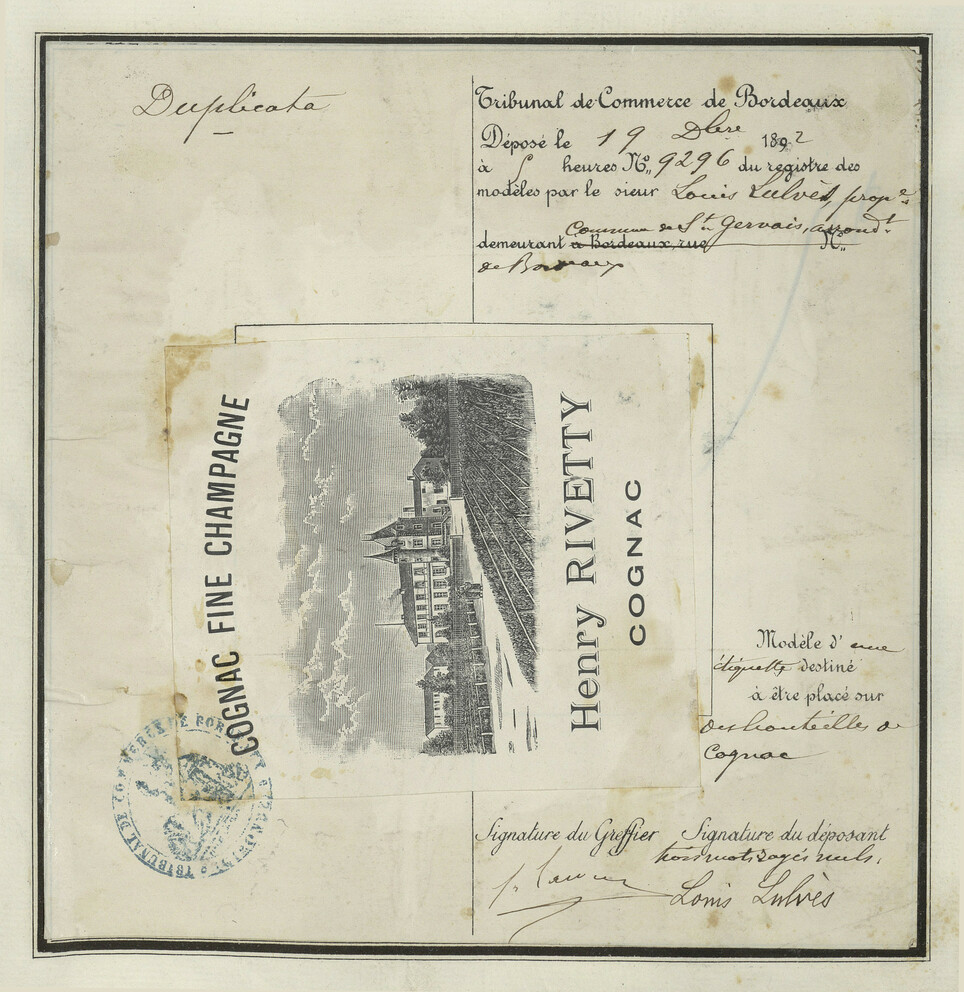 Duplicata
Tribunal de Commerce de Bordeaux
Déposé le 19 Xbre 1892
à 5 heures No. 9296 du registre des
modèles par le sieur Louis Lulvès, propre
Commune de St Gervais, arrondt
demeurant à Bordeaux, rue No.
de Bordeaux
COGNAC FINE CHAMPAGNE
Henry RIVETTY
COGNAC
Modèle d'une
étiquette destiné
à être placé sur
des bouteilles de
Cognac
TRIBUNAL DE COMMERCE DE BORDEAUX
Signature du Greffier Signature du déposant
trois mots rayés nuls.
Louis Lulvès